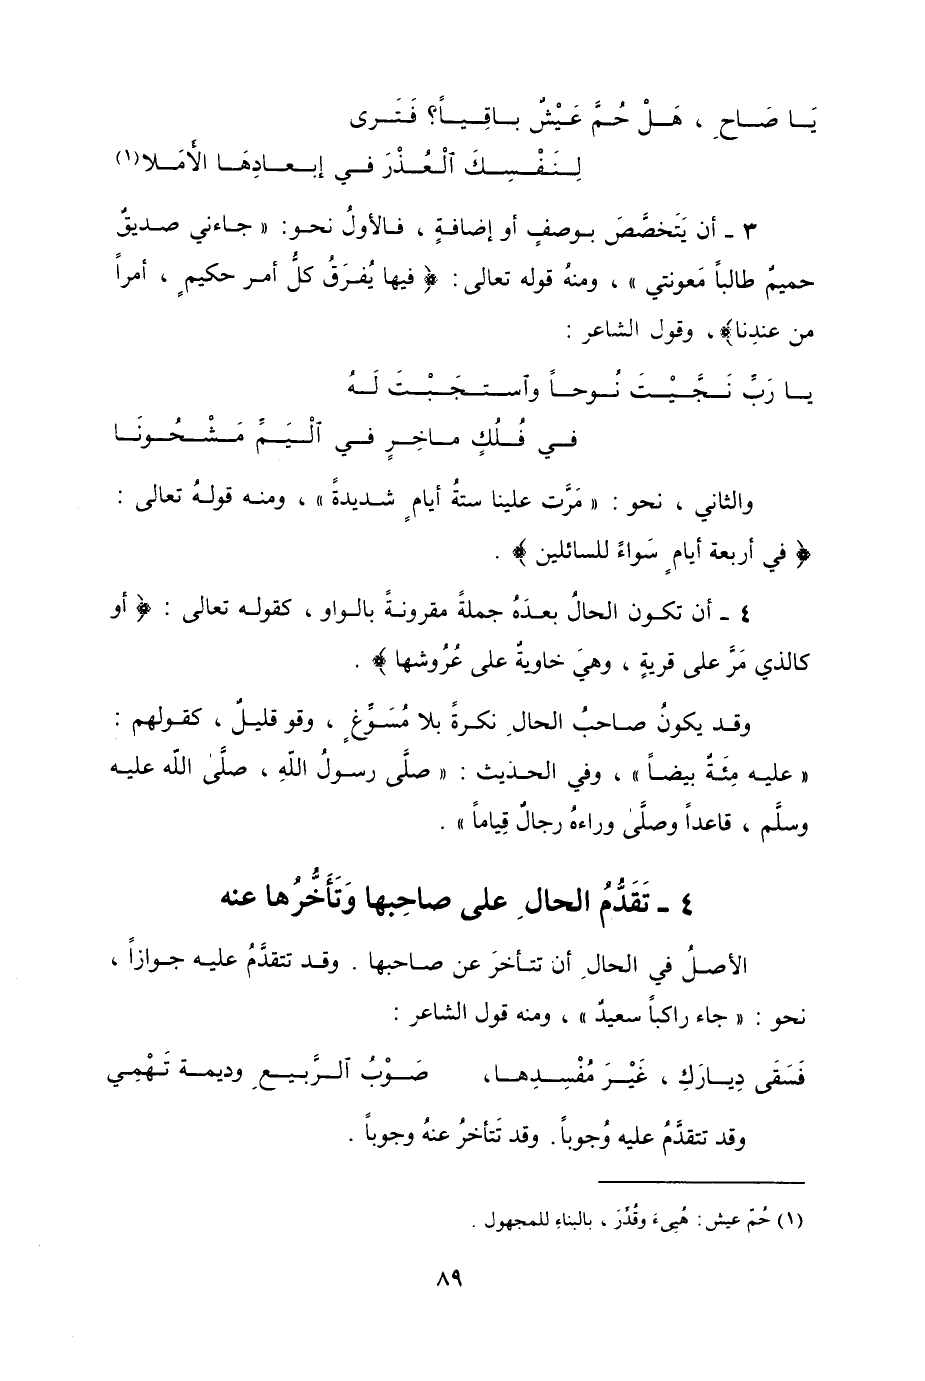 يَـا صَـاحِ ، هَـلْ حُمَّ عَيْشٌ بـاقِيـاً؟ فَتَـرى
لِـنَـفْـسِـكَ ٱلْـعُـذْرَ فـي إبـعـادِهَـا الأَمَـلا(١)
٣ ـ أن يَتَخصَّصَ بـوصفٍ أو إضافـةٍ ، فـالأولُ نحـو: « جـاءني صـديقٌ
حميمٌ طالباً مَعونتي » ، ومنهُ قوله تعالى : ﴿ فيها يُفـرَقُ كلُّ أمـر حكيمٍ ، أمراً
من عندِنا﴾ ، وقول الشاعر :
يـا رَبِّ نَـجَّيْـتَ نُـوحـاً وٱسـتـجَـبْـتَ لَـهُ
فـي فُـلُكٍ مـاخِـرٍ فـي ٱلْـيَـمِّ مَـشْـحُـونَـا
والثاني ، نحو : « مَرَّت علينا ستةُ أيامٍ شديدةً » ، ومنـه قولـهُ تعالى :
﴿ في أربعة أيامٍ سَواءً للسائلين ﴾ .
٤ ـ أن تكـون الحالُ بعـدَهُ جملةً مقرونـةً بالـواو ، كقولـه تعالى : ﴿ أو
كالذي مَرَّ على قريةٍ ، وهيَ خاويةٌ على عُرُوشها ﴾ .
وقـد يكونُ صـاحبُ الحالِ نكـرةً بلا مُسَـوِّغٍ ، وقو قليـلٌ ، كقـولهم :
« عليـه مِئَـةٌ بيضـاً » ، وفي الحـديث : « صلَّى رسـولُ اللهِ ، صلَّى الله عليـه
وسلَّم ، قاعداً وصلَّى وراءهُ رجالٌ قِياماً » .
٤ ـ تَقَدُّمُ الحالِ على صاحِبها وَتَأَخُّرُها عنه
الأصـلُ في الحالِ أن تتـأخرَ عن صـاحبها . وقـد تتقدَّمُ عليـه جـوازاً ،
نحو : « جاء راكباً سعيدٌ » ، ومنه قول الشاعر :
فَسَقَى دِيـارَكِ ، غَيْـرَ مُفْسِـدِهـا، صَـوْبُ ٱلـرَّبـيـعِ وديمـة تَـهْمِـي
وقد تتقدَّمُ عليه وُجوباً. وقد تَتأخرُ عنهُ وجوباً .
(١) حُمّ عيش : هُيىءَ وقُدِّرَ ، بالبناء للمجهول .
٨٩